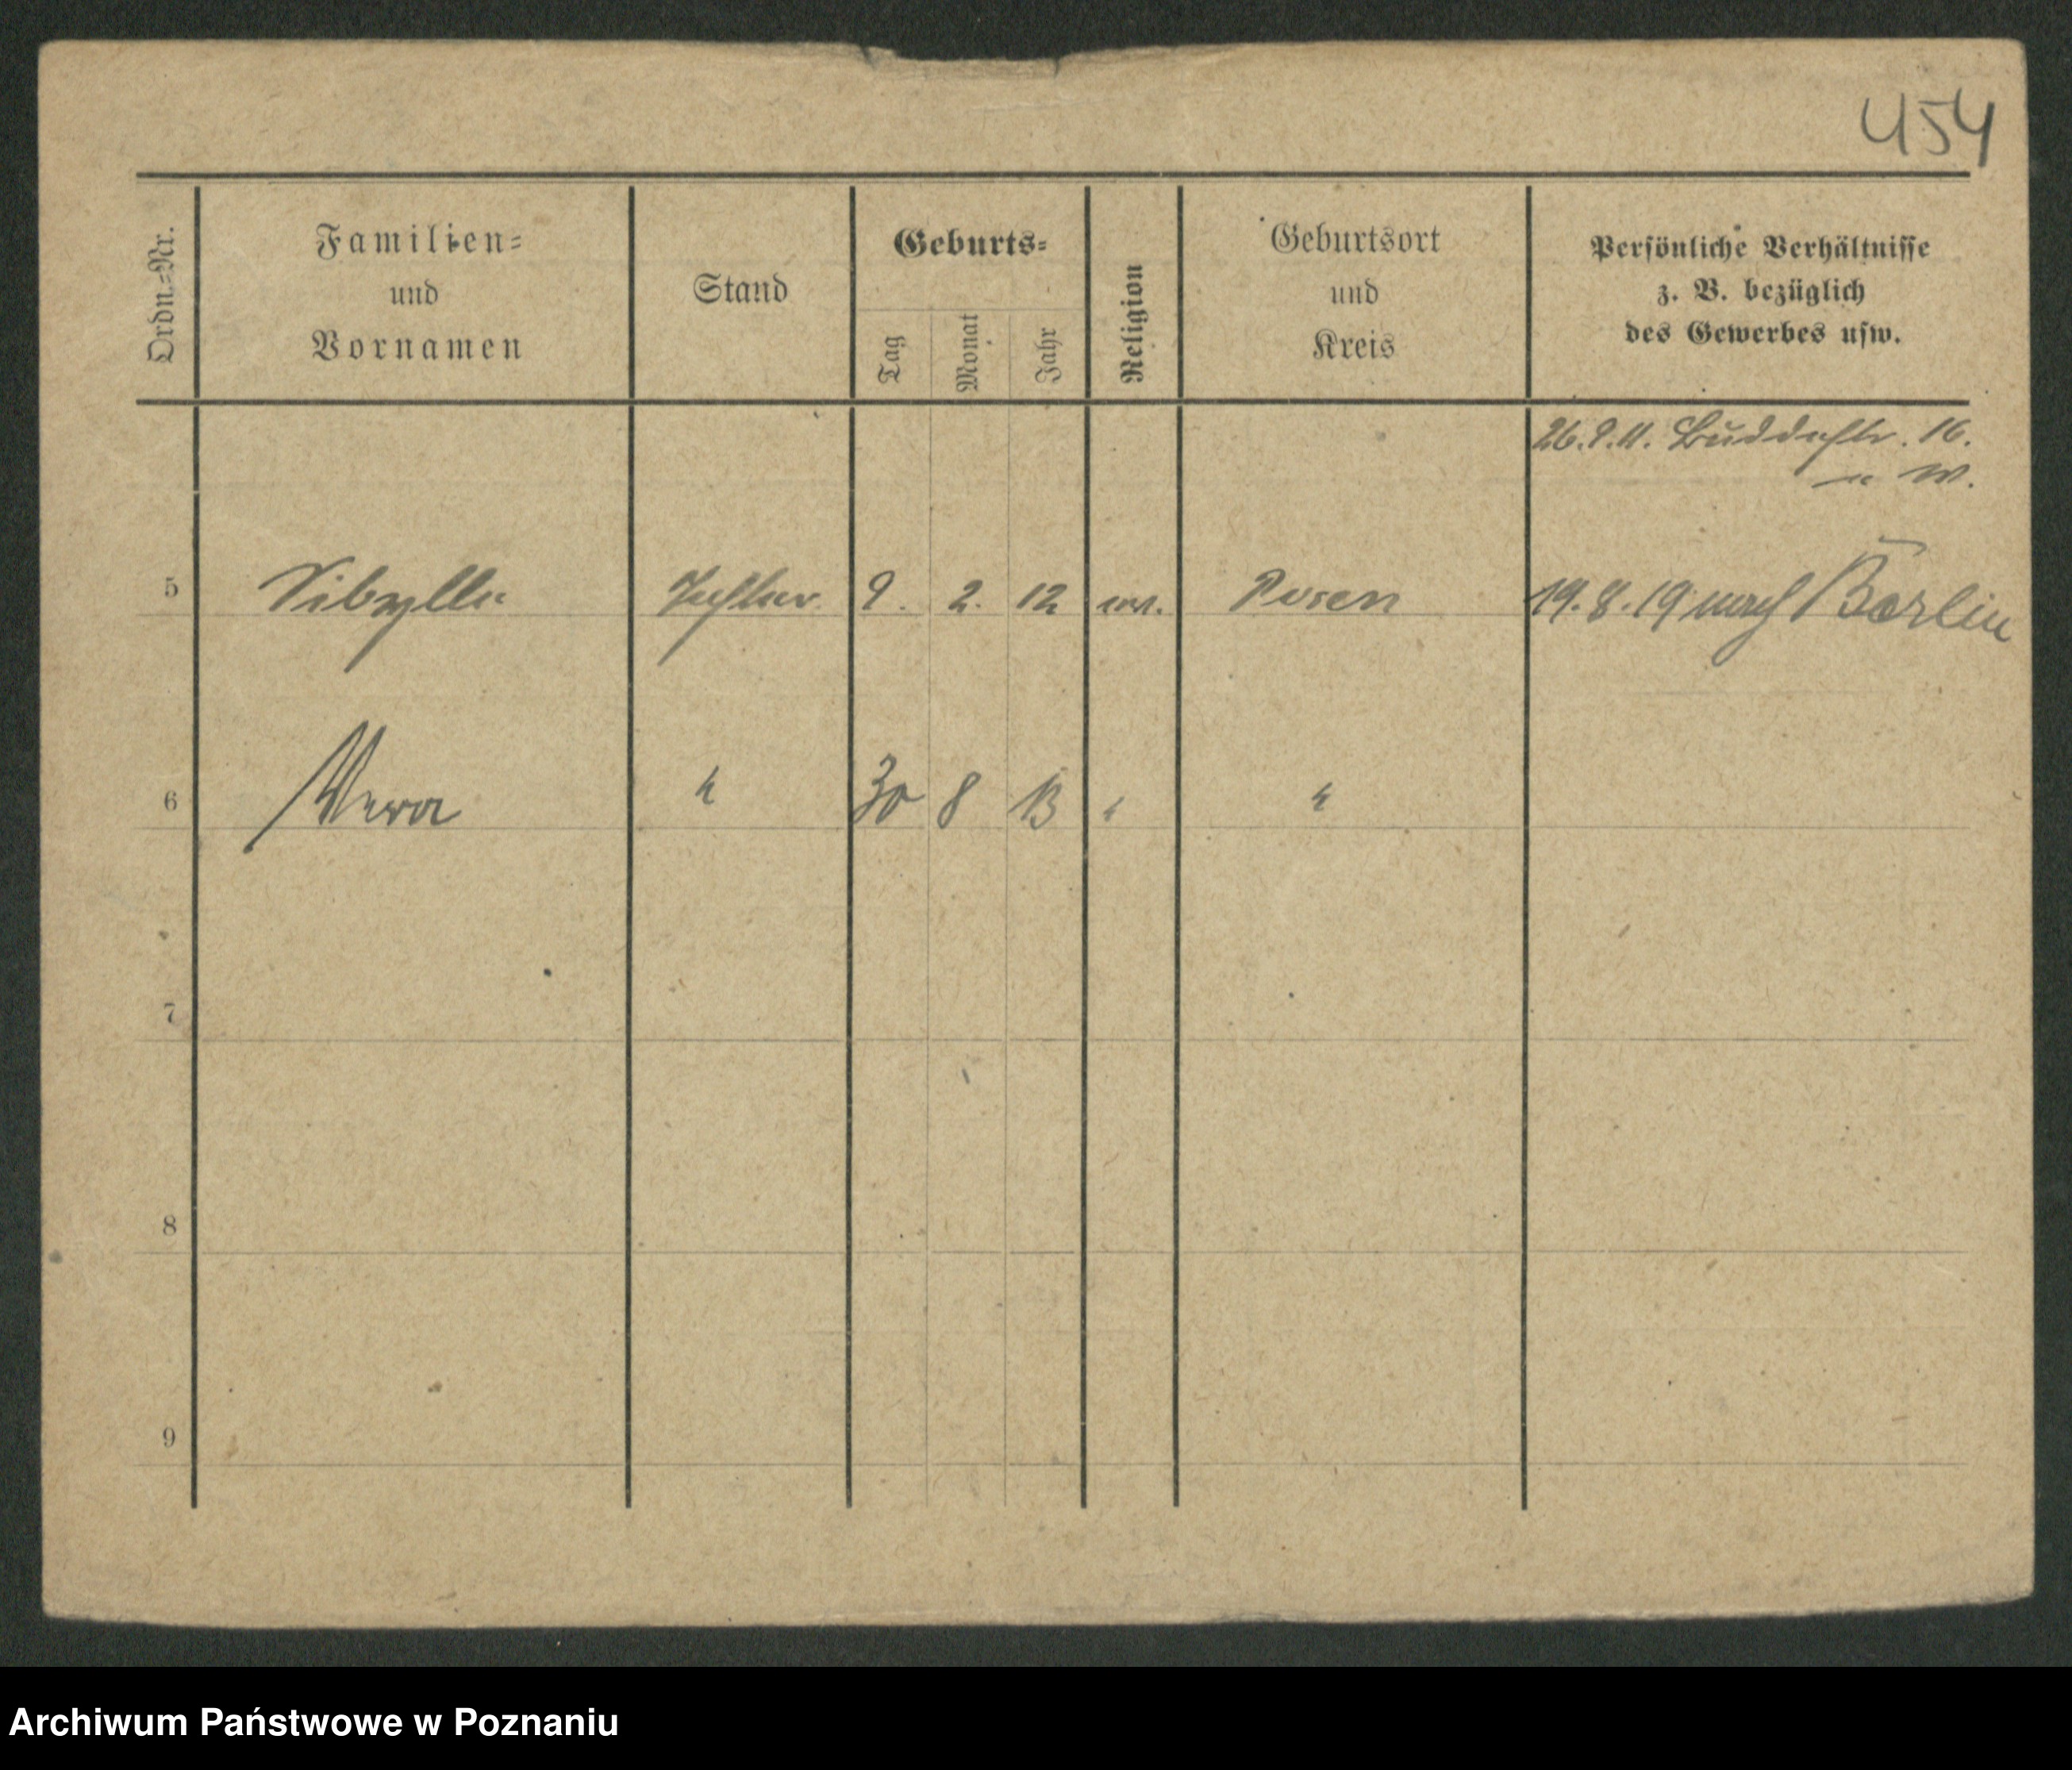 454
Ordn.-Nr.
Familien-
und
Vornamen
Stand
Geburts-
Tag
Monat
Jahr
Religion
Geburtsort
und
Kreis
Persönliche Verhältnisse
z. B. bezüglich
des Gewerbes usw.
26.9.11. Buddestr. 16.
w.
5 Sibylle Tochter 9. 2. 12 ev. Posen 19.8.19 nach Berlin
6 Wera " 30 8 13 " "
7
8
9
Archiwum Państwowe w Poznaniu